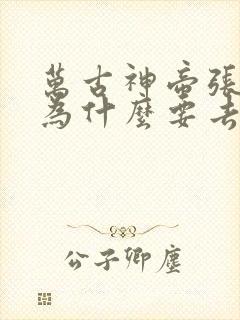 萬古神帝張
為什麼要去
公子卿塵